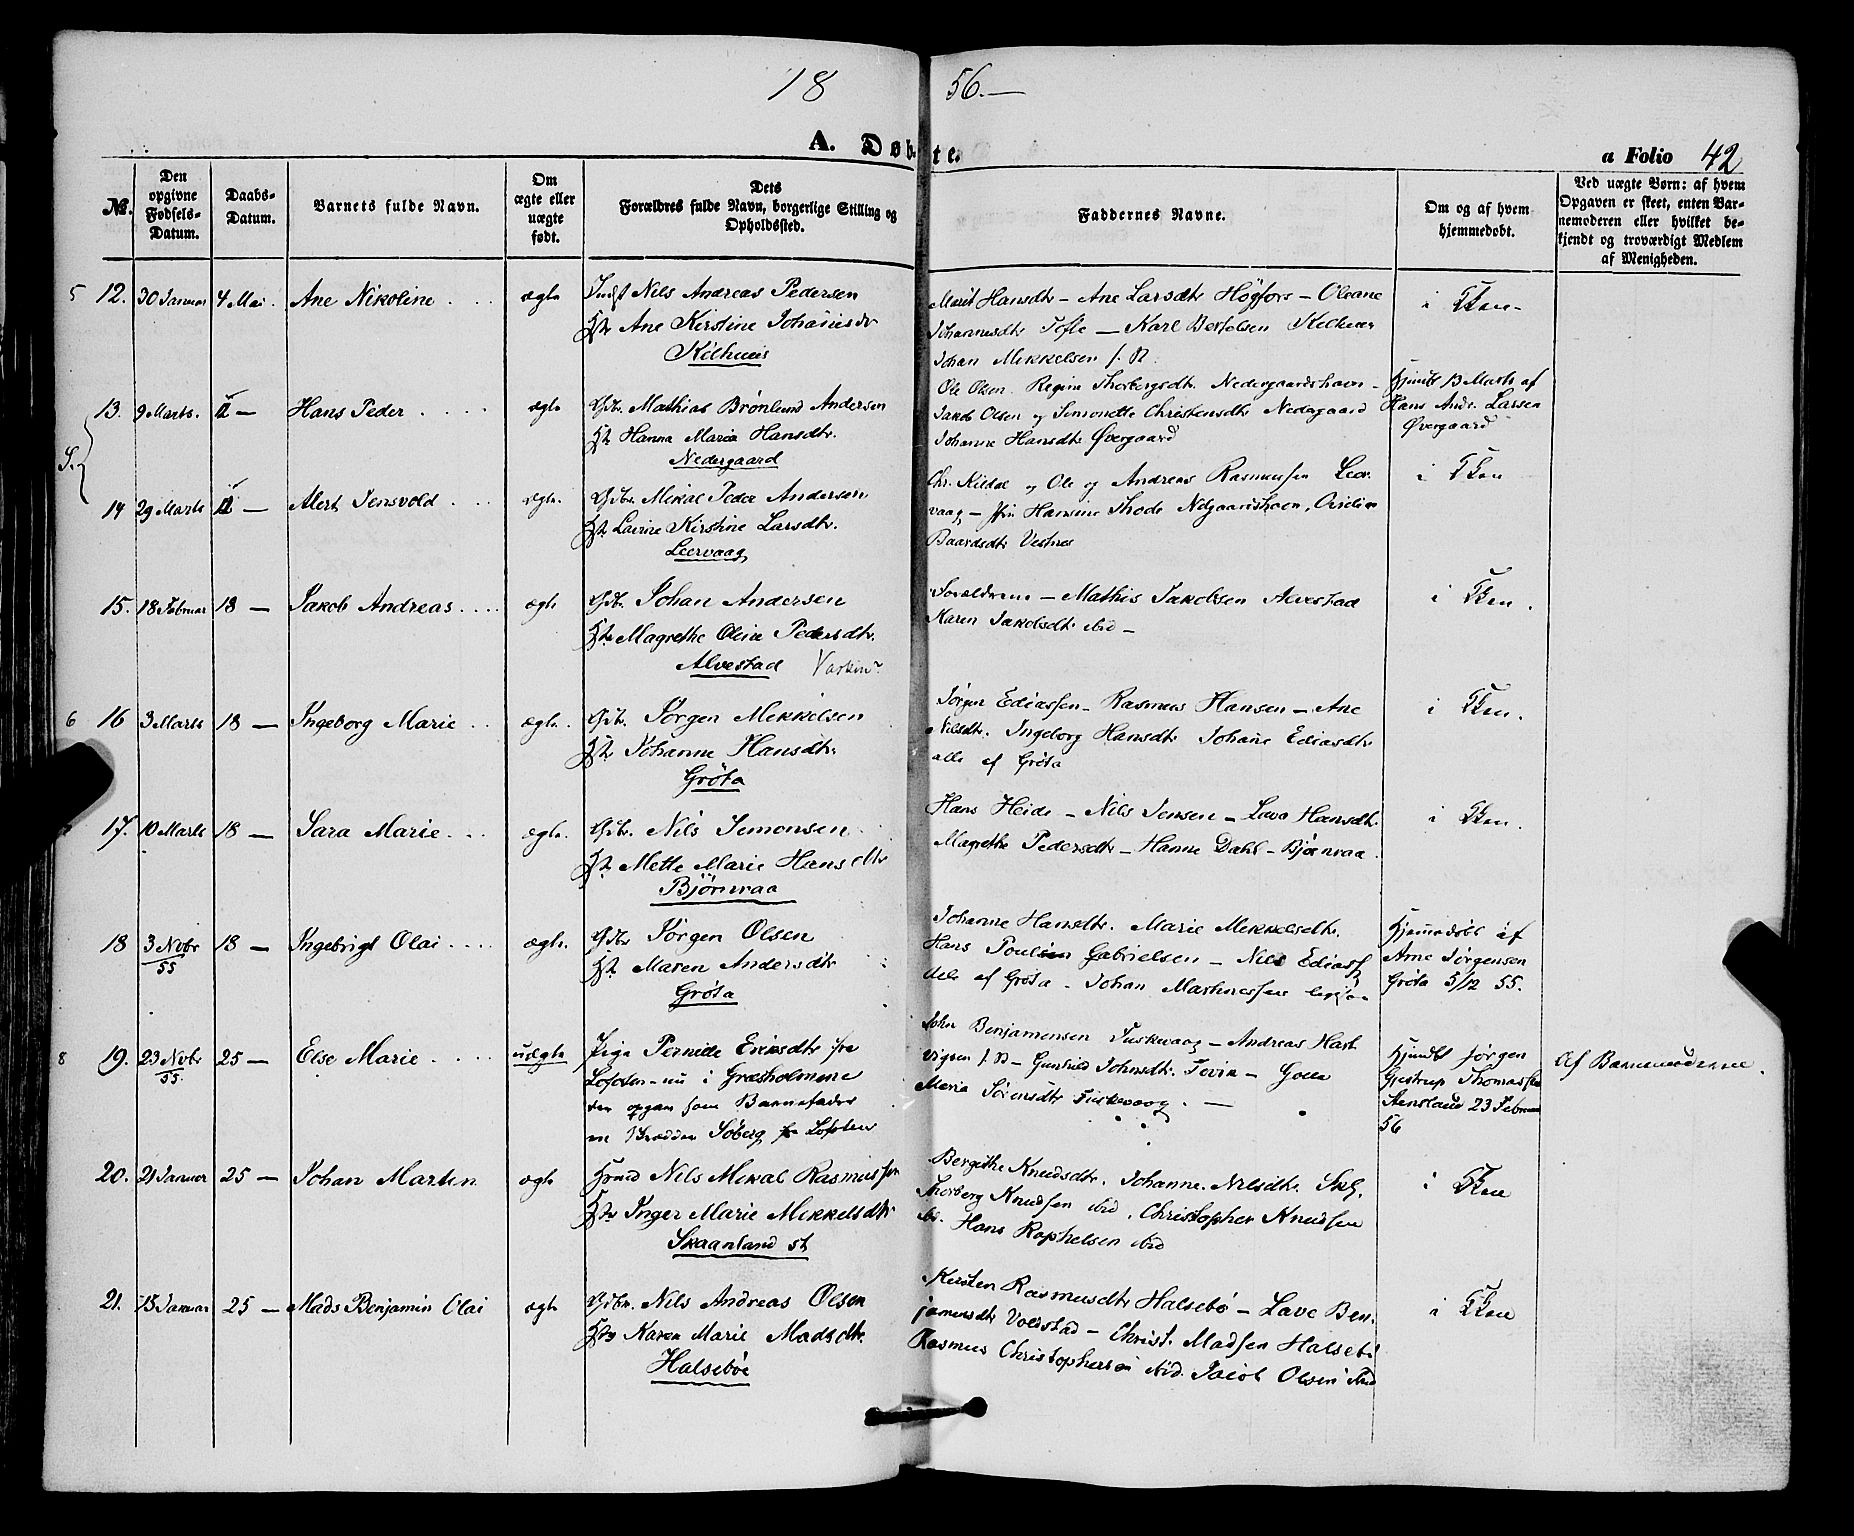 18 56.—
A. Døbte.
a Folio 42
№.
Den opgivne Fødsels-Datum.
Daabs-Datum.
Barnets fulde Navn.
Om ægte eller uægte født.
Dets Forældres fulde Navn, borgerlige Stilling og Opholdssted.
Faddernes Navne.
Om og af hvem hjemmedøbt.
Ved uægte Børn: af hvem Opgaven er skeet, enten Barnemoderen eller hvilket bekjendt og troværdigt Medlem af Menigheden.
5 12. 30 Januar 4 Mai. Ane Nikoline ægte Nils Andreas Pedersen
Ane Kirstine
Marit Hansdtr – Ane Larsdtr Høgfors – Oleane
Tofte – Karl Bertelsen
Johan Mikkelsen
i Kken
13. 9 Marts. Hans Peder ægte Gdbr. Mathias Brønlund Andersen
Hanna Maria Hansdtr.
Nedergaard
Ole Olsen Regine Thorbergsdtr. Nedergaardshavn –
Jakob Olsen og Simonette Christensdtr Nedergaard
Johanne Hansdtr Øvergaard
Hjemdbt 13 Marts af
Hans Andr. Larsen
Øvergaard
14 29 Marts Alert Jensvold ægte. Gdbr. Mikal Peder Andersen
Lavine Kirstine Larsdtr.
Leervaag
Chr. Kildal og Ole og Andreas Rasmussen Leer
vaag – Hansine Thode
Baardsdtr Vestnes
i Kken
15. 18 Februar 18 – Jakob Andreas ægte Gdbr. Johan Andersen
Magrethe Oline Pedersdtr.
Alvestad
Forældrene – Mathis Jakobsen Alvestad
Karen Jakobsdtr ibid –
i Kken.
6 16 3 Marts 18 – Ingeborg Marie ægte. Gdbr. Jørgen Mikkelsen
Johanne Hansdtr.
Grøta
Jørgen Ediassen – Rasmus Hansen – Ane
Nilsdtr. Ingeborg Hansdtr Johane Ediasdtr
alle af Grøta
i Kken.
17. 10 Marts 18 – Sara Marie ægte. Gdbr. Nils Simonsen
Mette Marie Hansdtr
Bjørnraa
Hans Heide – Nils Jensen – Lava Hansdtr.
Magrethe Pedersdtr – Hanne Dahl – Bjørnraa.
i Kken.
18 3 Nvbr 55 18 – Ingebrigt Olai ægte. Gdbr Jørgen Olsen
Maren Andersdtr
Grøta
Johanne Hansdtr. Marie Mikkelsdtr.
Hans Poulsen Gabrielsen – Nils Ediass
alle af Grøta – Johan
Hjemmedøbt af
Arne Jørgensen
Grøta 5/12 55.
8 19. 23 Nvbr 55. 25 – Else Marie uægte Pige Pernille Eriksdtr fra
Lofoten – nu i Græsholmene
der opgav som Barnefader
Søberg fra Lofoten
John Benjaminsen Tuskevaag – Andreas Hart
vigsen – Gunhild Johnsdtr.
Maria Sørensdtr Tuskevaag. –
Hjemdbt Jørgen
Gjestrup
23 Februar
56
Af Barnemoderen.
20. 21 Januar 25 – Johan Martin ægte Nils Mikal Rasmussen
Inger Marie Mikkelsdtr
Skaanland st
Bergithe Knudsdtr. Johanne Nilsdtr.
Thorberg Knudsen ibid. Christopher Knudsen
Hans Raphelsen ibid
i Kken
21. 15 Januar 25 – Mads Benjamin Olai ægte Gdbr. Nils Andreas Olsen
Karen Marie Madsdtr.
Halsebøe
Kirsten Rasmusdtr Halsebø – Lave Ben
jaminsdtr Voldstad – Christ. Madsen Halsebø
Rasmus Christophersen ibid. Jacob Olsen ibid
i Kken